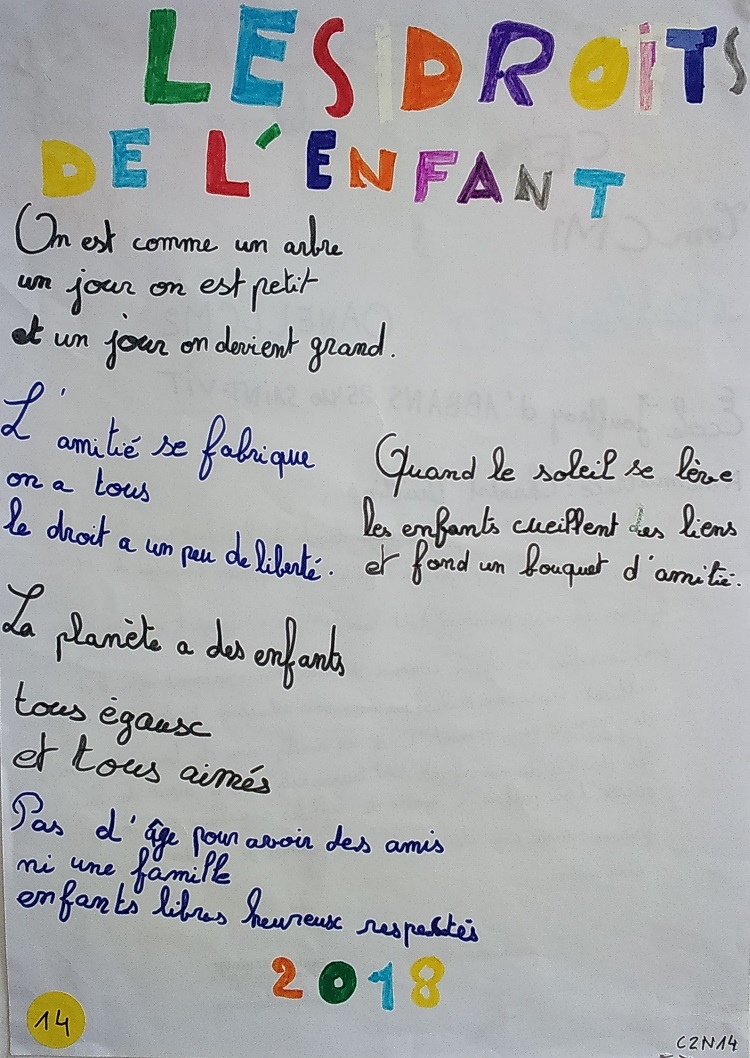 LES DROITS
DE L'ENFANT
On est comme un arbre
un jour on est petit
et un jour on devient grand.
L'amitié se fabrique
on a tous
le droit a un peu de liberté.
Quand le soleil se lève
les enfants cueillent des liens
et fond un bouquet d'amitié.
La planète a des enfants
tous égaux
et tous aimés
Pas d'âge pour avoir des amis
ni une famille
enfants libres heureux respectés
2018
14
C2N14